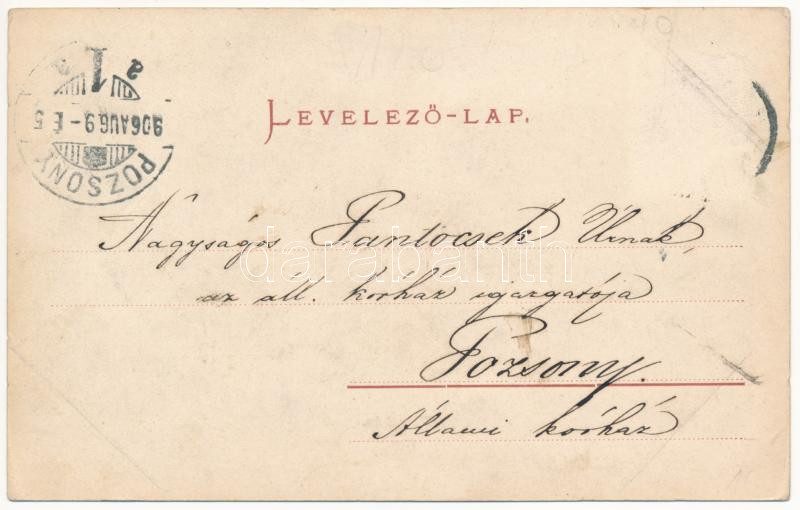 LEVELEZŐ-LAP.
POZSONY
906 AUG 9 - É 5
1 a
Nagyságos Pantocsek Úrnak,
az áll. kórház igazgatója
Pozsony.
Állami kórház
darabanth